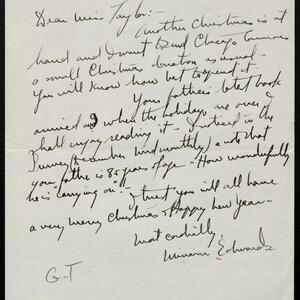 Dear Miss Taylor:-
Another Christmas is at
hand and I want to send Chicago Commons
a small Christmas donation as usual -
You will know how best to spend it.
Your father's latest book
arrived and when the holidays are over I
shall enjoy reading it. I noticed in the
(December Unity monthly) a note that
your father is 85 years of age - How wonderfully
he's carrying on! - I trust you will all have
a very merry Christmas & Happy New Year -
Most cordially,
Miriam Edwards
G-T